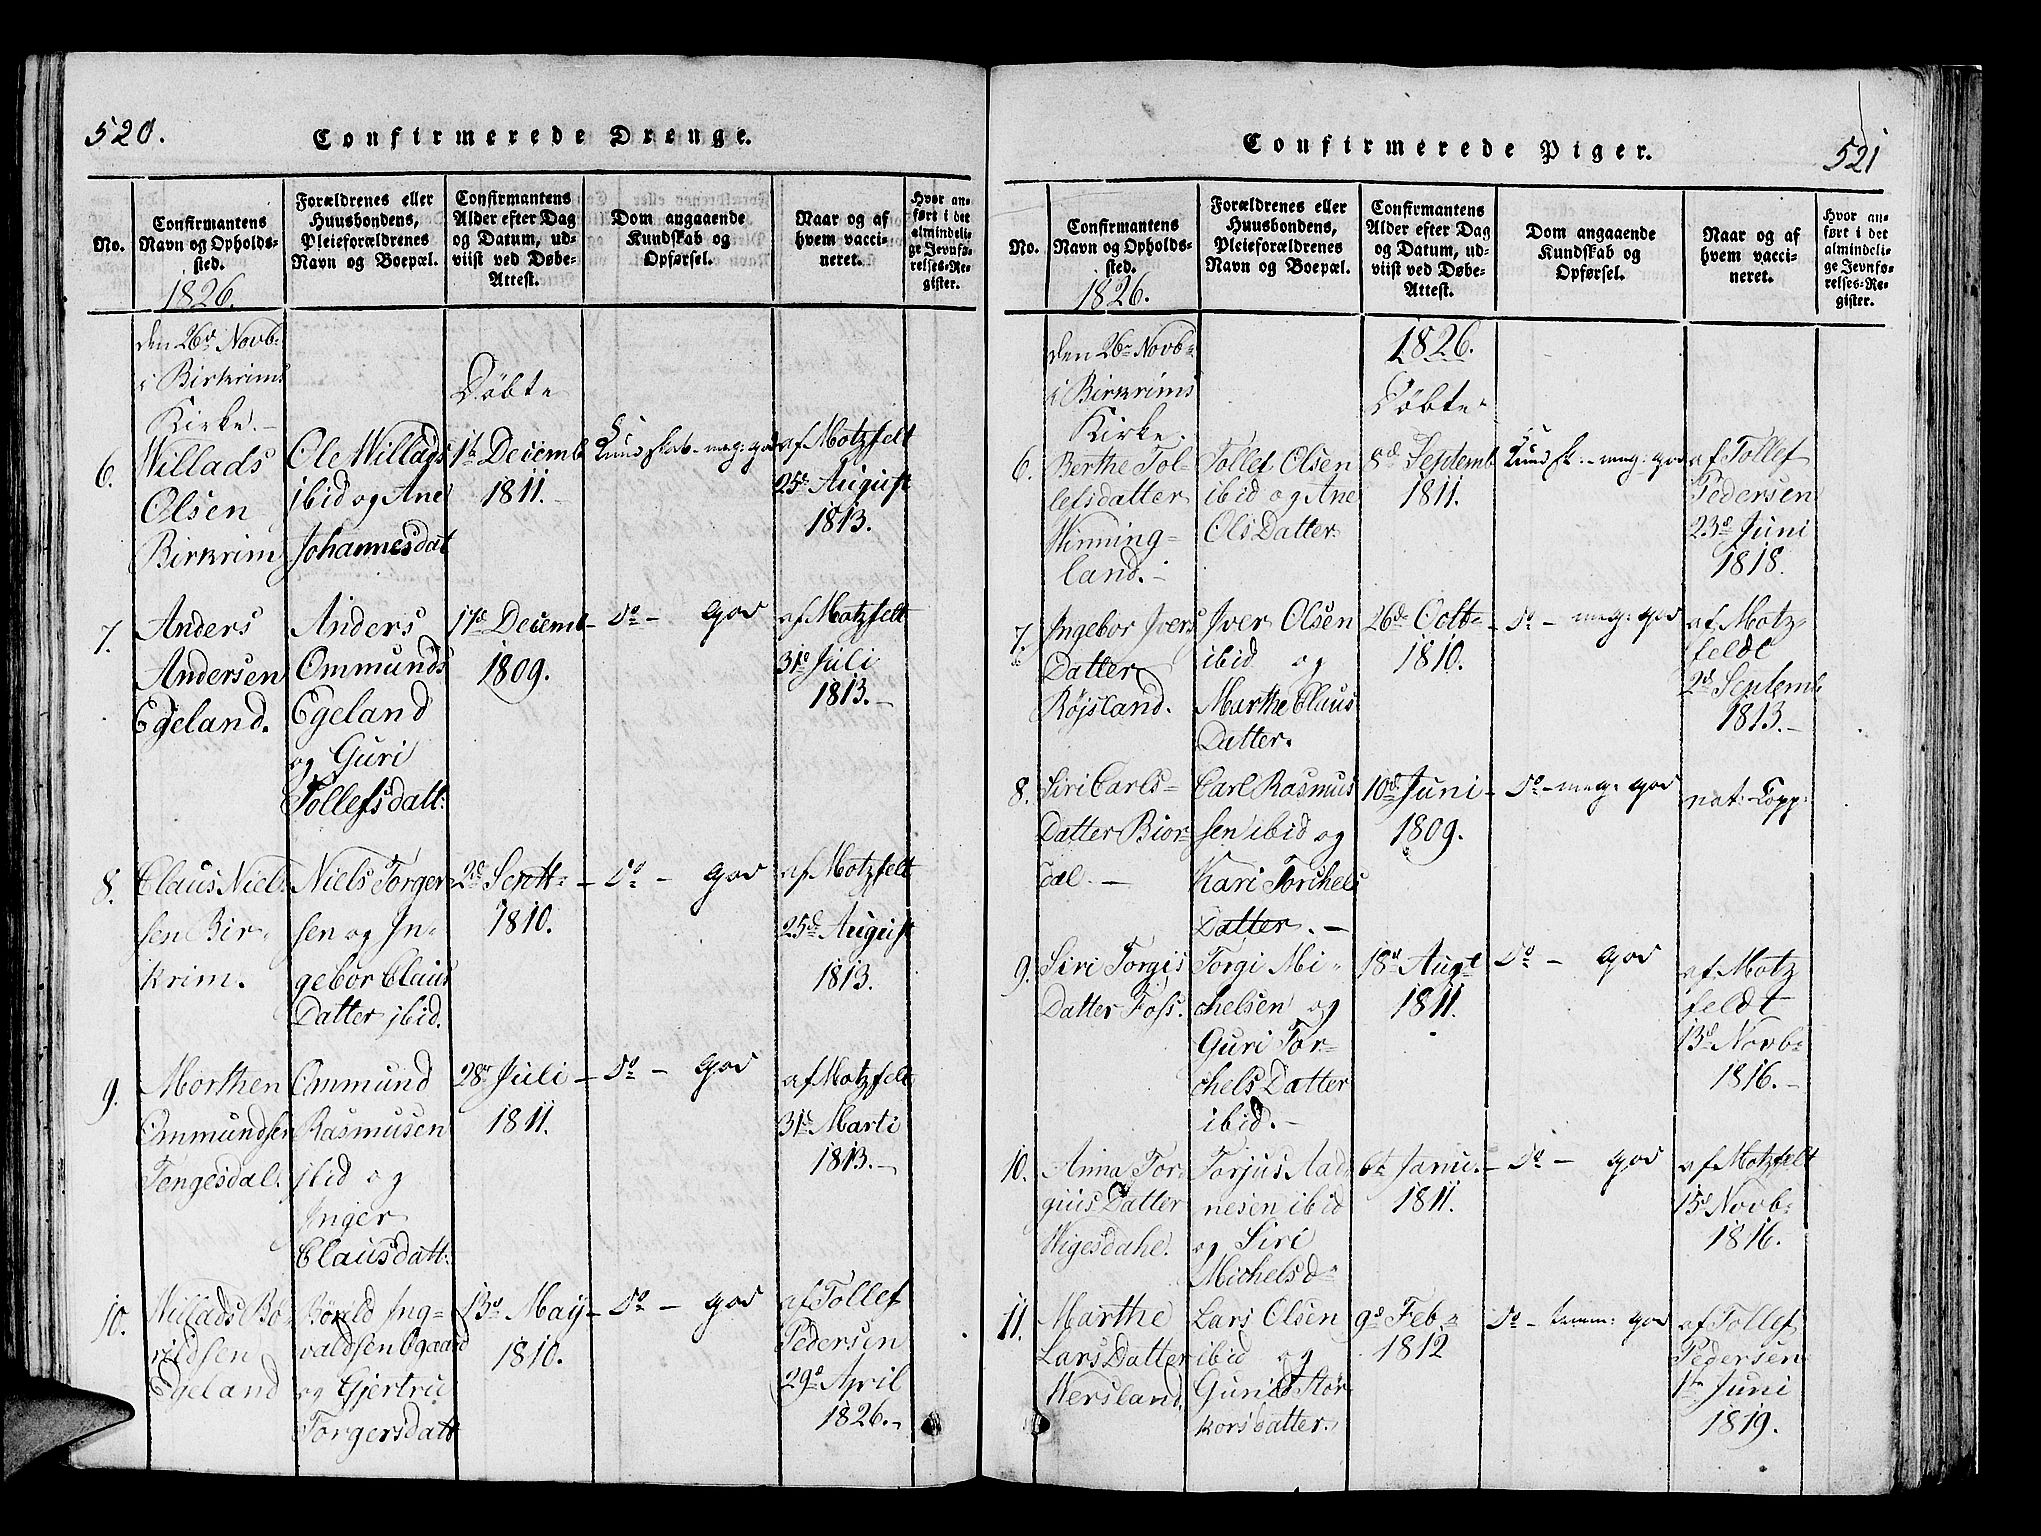 520.
Confirmerede Drenge.
No.
Confirmantens
Navn og Opholds-
sted.
1826.
Forældrenes eller
Huusbondens,
Pleieforældrenes
Navn og Boepæl.
Confirmantens
Alder efter Dag
og Datum, ud-
viist ved Døbe-
Attest.
Dom angaaende
Kundskab og
Opførsel.
Naar og af
hvem vacci-
neret.
Hvor an-
ført i det
almindeli-
ge Jevnfø-
relses-Re-
gister.
den 26de Novb.
i Birkrims
Kirke.
Døbte
6.
Willads
Olsen
Birkrim
Ole Willads
ibid og Ane
Johannesdat
1te Decemb
1811.
Kundskab - meg: god
af Motzfelt
25de August
1813.
7.
Anders
Andersen
Egeland.
Anders
Ommunds
Egeland
og Guri
Tollefsdatt:
17de Decemb
1809.
do - god
af Motzfelt
31de Juli
1813.-
8.
Claus Niel-
sen Bir-
krim.
Niels Torger-
sen og In-
gebor Claus
Datter ibid.
2de Sept
1810.
do - god
af Motzfelt
25de August
1813.
9.
Morthen
Ommundsen
Tengesdal.
Ommund
Rasmusen
ibid og
Inger
Clausdatt:
28de Juli
1811.
do - god
af Motzfelt
31de Marti
1813.-
10.
Willads Bo-
rildsen
Egeland
Borild Ing-
valdsen Egaard
og Gjertru
Torgersdatt
13de May
1810.
do - god
af Tollef
Pedersen
29de April
1826.-
521
Confirmerede Piger.
No.
Confirmantens
Navn og Opholds-
sted.
1826.
Forældrenes eller
Huusbondens,
Pleieforældrenes
Navn og Boepæl.
Confirmantens
Alder efter Dag
og Datum, ud-
viist ved Døbe-
Attest.
Dom angaaende
Kundskab og
Opførsel.
Naar og af
hvem vacci-
neret.
Hvor an-
ført i det
almindeli-
ge Jevnfø-
relses-Re-
gister.
den 26de Novb
i Birkrims
Kirke.
1826.
Døbte
6.
Berthe Tol-
lefsdatter
Winning-
land.-
Tollef Olsen
ibid og Ane
Ols Datter
8de Septemb
1811.
Kundsk. - meg: god
af Tollef
Pedersen
23de Juni
1818.
7.
Ingebor Ivers
Datter
Røjsland.
Iver Olsen
ibid og
Marthe Claus
Datter.
26de Octt
1810.
do - meg: god
af Motz-
feldt
2de Septemb
1813.-
8.
Siri Carls-
Datter Bior-
dal.-
Carl Rasmus
sen ibid og
Kari Torchels
Datter.-
10de Juni
1809.
do - meg: god
nat: Kopp:
9.
Siri Torgis
Datter Foss.
Torgi Mi-
chelsen og
Guri Tor-
chels Datter
ibid.-
18de Augt
1811.
do - god
af Motz
feldt
13de Novb
1816.-
10.
Anna Tor-
guis Datter
Wigesdahl.
Torjus Aad-
nesen ibid
og Siri
Michelsd
6te Janu.
1811.
do - god
af Motzfelt
15de Novb
1816.
11.
Marthe
Lars Datter
Wersland.
Lars Olsen
ibid og
Gunild Stor
korsdatter.
9de Feb
1812
do - temm: god
af Tollef
Pedersen
1te Juni
1819.